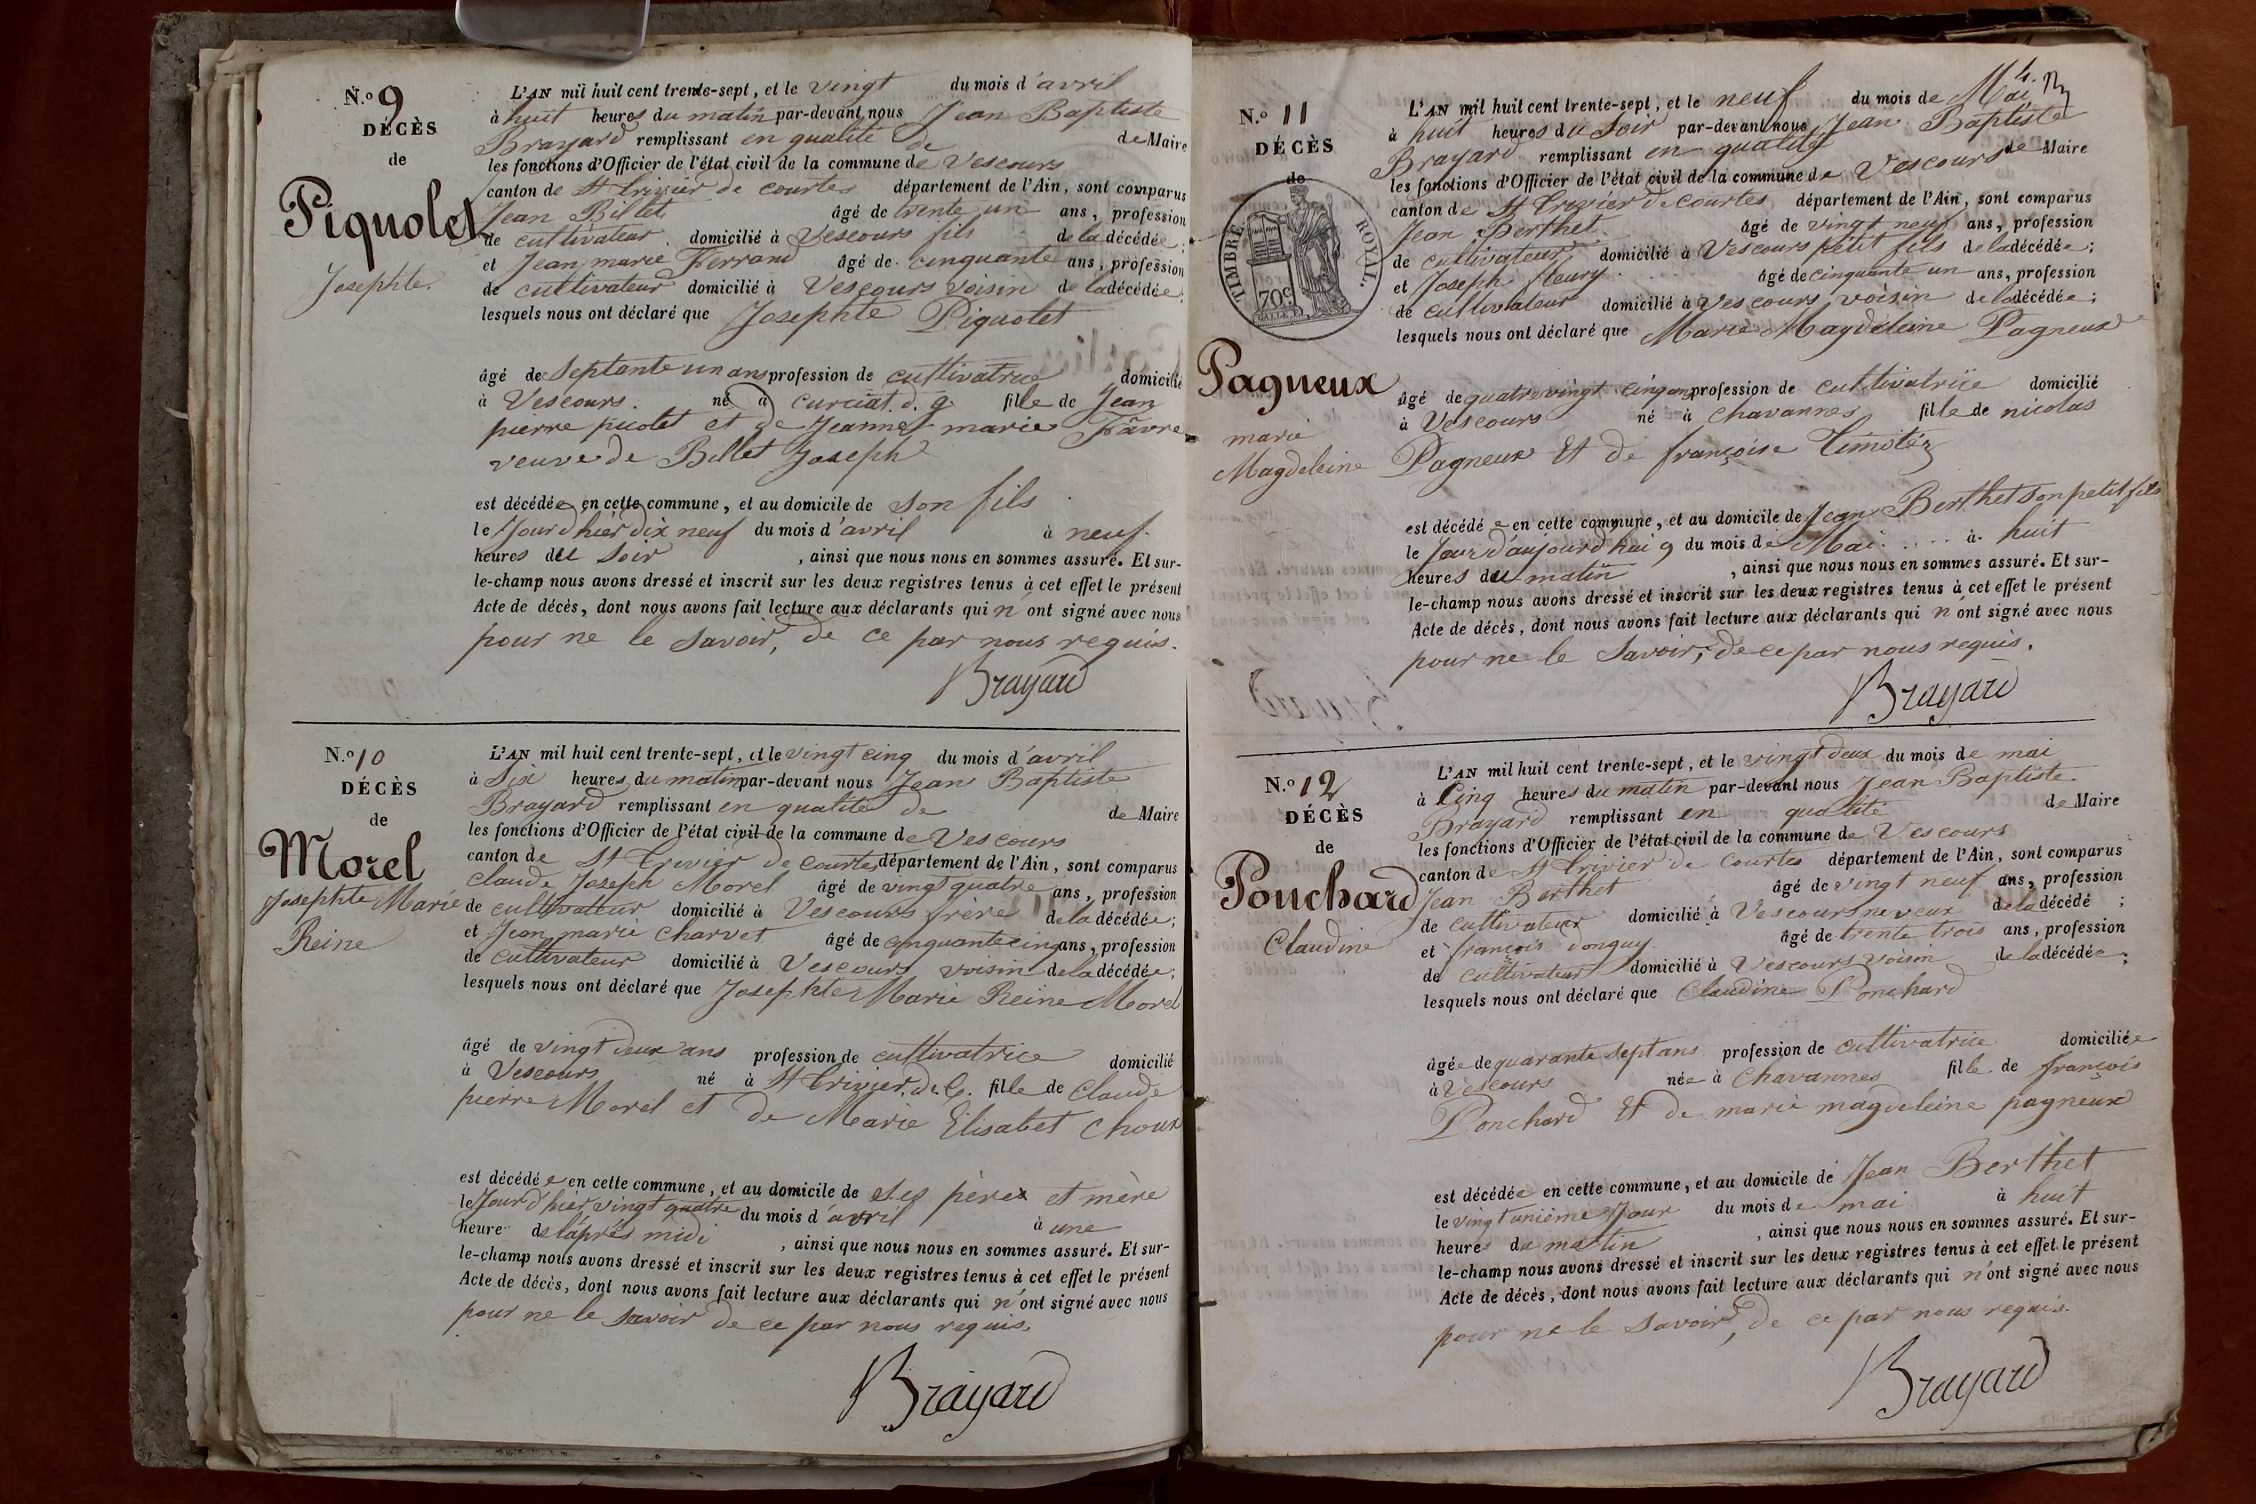 N.o 9
DÉCÈS
de
Piquolet
Josephte.
L'AN mil huit cent trente-sept, et le vingt du mois d'avril
à huit heures du matin par-devant nous Jean Baptiste
Brayard remplissant en qualité de de Maire
les fonctions d'Officier de l'état civil de la commune de Vescours
canton de St trivier de courtes département de l'Ain, sont comparus
Jean Billet âgé de trente un ans, profession
de cultivateur. domicilié à Vescours fils de la décédée;
et Jean marie Ferrand âgé de cinquante ans, profession
de cultivateur domicilié à Vescours voisin de la décédée;
lesquels nous ont déclaré que Josephte Piquolet
âgé de Septante un ans profession de cultivatrice domicilié
à Vescours. né à curciat. d. g fille de Jean
pierre picolet et de Jeanne marie Favre
veuve de Billet Joseph
est décédée en cette commune, et au domicile de son fils
le Jour d'hier dix neuf du mois d'avril à neuf
heures du soir, ainsi que nous nous en sommes assuré. Et sur-
le-champ nous avons dressé et inscrit sur les deux registres tenus à cet effet le présent
Acte de décès, dont nous avons fait lecture aux déclarants qui n'ont signé avec nous
pour ne le savoir, de ce par nous requis.
Brayard
N.o 10
DÉCÈS
de
Morel
Josephte Marie
Reine
L'AN mil huit cent trente-sept, et le vingt cinq du mois d'avril
à Six heures du matin par-devant nous Jean Baptiste
Brayard remplissant en qualité de de Maire
les fonctions d'Officier de l'état civil de la commune de Vescours
canton de St trivier de courtes département de l'Ain, sont comparus
Claude Joseph Morel âgé de vingt quatre ans, profession
de cultivateur domicilié à Vescours frère de la décédée;
et Jean marie Charvet âgé de cinquante cinq ans, profession
de cultivateur domicilié à Vescours voisin de la décédée;
lesquels nous ont déclaré que Josephte Marie Reine Morel
âgé de vingt deux ans profession de cultivatrice domicilié
à Vescours né à St trivier. de C. fille de Claude
pierre Morel et de Marie Elisabet Choux
est décédée en cette commune, et au domicile de ses père et mère
le Jour d'hier vingt quatre du mois d'avril à une
heure de l'après midi, ainsi que nous nous en sommes assuré. Et sur-
le-champ nous avons dressé et inscrit sur les deux registres tenus à cet effet le présent
Acte de décès, dont nous avons fait lecture aux déclarants qui n'ont signé avec nous
pour ne le savoir de ce par nous requis.
Brayard
N.o 11
DÉCÈS
de
TIMBRE ROYAL.
70c
Pagneux
marie
Magdeleine
L'AN mil huit cent trente-sept, et le neuf du mois de Mai
à huit heures du Soir par-devant nous Jean Baptiste
Brayard remplissant en qualité de Maire
les fonctions d'Officier de l'état civil de la commune de Vescours
canton de St trivier de courtes département de l'Ain, sont comparus
Jean Berthet âgé de vingt neuf ans, profession
de cultivateur domicilié à Vescours petit fils de la décédée;
et Joseph fleury âgé de cinquante un ans, profession
de cultivateur domicilié à Vescours voisin de la décédée;
lesquels nous ont déclaré que Marie Magdeleine Pagneux
âgé de quatre vingt cinq ans profession de cultivatrice domicilié
à Vescours né à Chavannes fille de nicolas
Pagneux Et de françoise timotéz
est décédée en cette commune, et au domicile de Jean Berthet son petit fils
le Jour d'aujourd'hui 9 du mois de Mai à huit
heures du matin, ainsi que nous nous en sommes assuré. Et sur-
le-champ nous avons dressé et inscrit sur les deux registres tenus à cet effet le présent
Acte de décès, dont nous avons fait lecture aux déclarants qui n'ont signé avec nous
pour ne le savoir, de ce par nous requis.
Brayard
N.o 12
DÉCÈS
de
Ponchard
Claudine
L'AN mil huit cent trente-sept, et le vingt deux du mois de mai
à Cinq heures du matin par-devant nous Jean Baptiste
Brayard remplissant en qualité de Maire
les fonctions d'Officier de l'état civil de la commune de Vescours
canton de St trivier de Courtes département de l'Ain, sont comparus
Jean Berthet âgé de vingt neuf ans, profession
de cultivateur domicilié à Vescours neveux de la décédé;
et françois donguy âgé de trente trois ans, profession
de cultivateur domicilié à Vescours voisin de la décédée;
lesquels nous ont déclaré que Claudine Ponchard
âgée de quarante sept ans profession de cultivatrice domiciliée
à Vescours née à Chavannes fille de françois
Ponchard Et de marie magdeleine pagneux
est décédée en cette commune, et au domicile de Jean Berthet
le vingt unième Jour du mois de mai à huit
heures du matin, ainsi que nous nous en sommes assuré. Et sur-
le-champ nous avons dressé et inscrit sur les deux registres tenus à cet effet le présent
Acte de décès, dont nous avons fait lecture aux déclarants qui n'ont signé avec nous
pour ne le savoir, de ce par nous requis.
Brayard